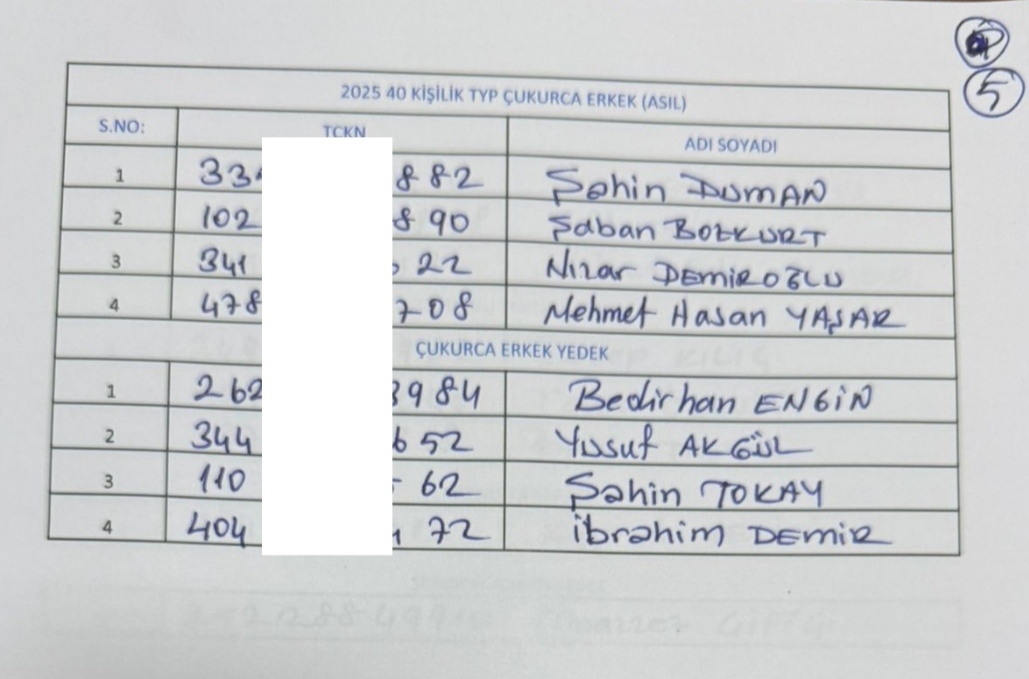 5
2025 40 KİŞİLİK TYP ÇUKURCA ERKEK (ASIL)
S.NO: TCKN ADI SOYADI
1 33 882 Şahin DUMAN
2 102 890 Şaban BOZKURT
3 341 22 Nizar DEMİROĞLU
4 478 708 Mehmet Hasan YAŞAR
ÇUKURCA ERKEK YEDEK
1 262 3984 Bedirhan ENGİN
2 344 652 Yusuf AKGÜL
3 110 62 Şahin TOKAY
4 404 72 İbrahim DEMİR